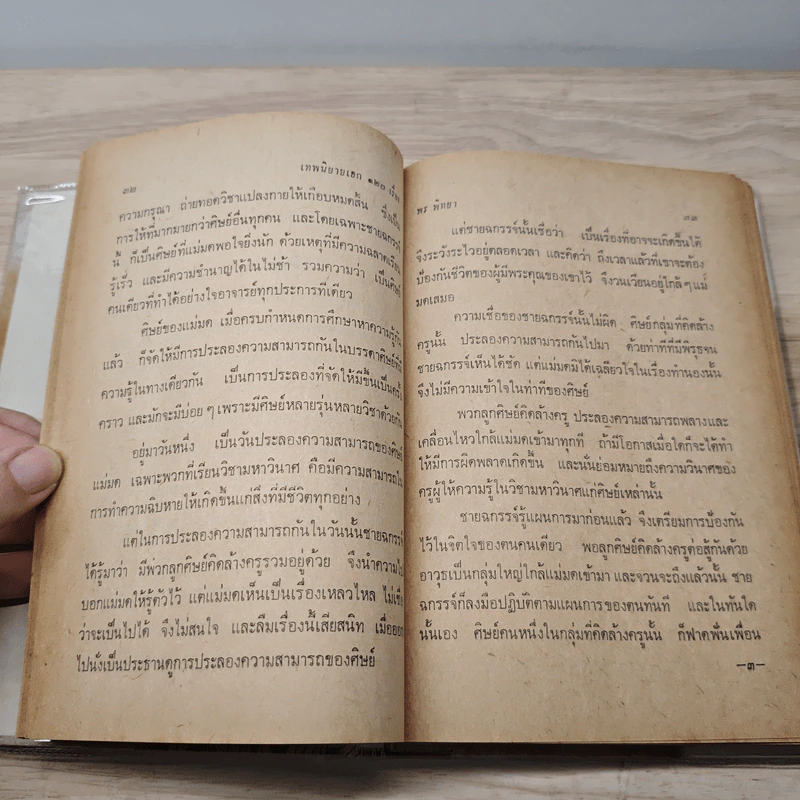 ๓๒
เทพนิยายเอก ๑๒๐ เรื่อง
ความกรุณา ถ่ายทอดวิชาแปลงกายให้เกือบหมดสิ้น ซึ่งเป็น
การให้ที่มากมายกว่าศิษย์อื่นทุกคน และโดยเฉพาะชายฉกรรจ์
นี้ ก็เป็นศิษย์ที่แม่มดพอใจยิ่งนัก ด้วยเหตุที่มีความฉลาดเรียน
รู้เร็ว และมีความชำนาญได้ในไม่ช้า รวมความว่า เป็นศิษย์
คนเดียวที่ทำได้อย่างใจอาจารย์ทุกประการทีเดียว
ศิษย์ของแม่มด เมื่อครบกำหนดการศึกษาหาความรู้กัน
แล้ว ก็จัดให้มีการประลองความสามารถกันในบรรดาศิษย์ที่มี
ความรู้ในทางเดียวกัน เป็นการประลองที่จัดให้มีขึ้นเป็นครั้ง
คราว และมักจะมีบ่อย ๆ เพราะมีศิษย์หลายรุ่นหลายวิชาด้วยกัน
อยู่มาวันหนึ่ง เป็นวันประลองความสามารถของศิษย์
แม่มด เฉพาะพวกที่เรียนวิชามหาวินาศ คือมีความสามารถใน
การทำความฉิบหายให้เกิดขึ้นแก่สิ่งที่มีชีวิตทุกอย่าง
แต่ในการประลองความสามารถกันในวันนั้นชายฉกรรจ์
ได้รู้มาว่า มีพวกลูกศิษย์คิดล้างครูรวมอยู่ด้วย จึงนำความไป
บอกแม่มดให้รู้ตัวไว้ แต่แม่มดเห็นเป็นเรื่องเหลวไหล ไม่เชื่อ
ว่าจะเป็นไปได้ จึงไม่สนใจ และลืมเรื่องนี้เสียสนิท เมื่อออก
ไปนั่งเป็นประธานดูการประลองความสามารถของศิษย์
พร พิทยา
๓๓
แต่ชายฉกรรจ์นั้นเชื่อว่า เป็นเรื่องที่อาจจะเกิดขึ้นได้
จึงระวังระไวอยู่ตลอดเวลา และคิดว่า ถึงเวลาแล้วที่เขาจะต้อง
ป้องกันชีวิตของผู้มีพระคุณของเขาไว้ จึงวนเวียนอยู่ใกล้ ๆ แม่
มดเสมอ
ความเชื่อของชายฉกรรจ์นั้นไม่ผิด ศิษย์กลุ่มที่คิดล้าง
ครูนั้น ประลองความสามารถกันไปมา ด้วยท่าทีที่มีพิรุธจน
ชายฉกรรจ์เห็นได้ชัด แต่แม่มดมิได้เฉลียวใจในเรื่องทำนองนั้น
จึงไม่มีความเข้าใจในท่าทีของศิษย์
พวกลูกศิษย์คิดล้างครู ประลองความสามารถพลางและ
เคลื่อนไหวใกล้แม่มดเข้ามาทุกที ถ้ามีโอกาสเมื่อใดก็จะได้ทำ
ให้มีการผิดพลาดเกิดขึ้น และนั่นย่อมหมายถึงความวินาศของ
ครูผู้ให้ความรู้ในวิชามหาวินาศแก่ศิษย์เหล่านั้น
ชายฉกรรจ์รู้แผนการมาก่อนแล้ว จึงเตรียมการป้องกัน
ไว้ในจิตใจของตนคนเดียว พอลูกศิษย์คิดล้างครูต่อสู้กันด้วย
อาวุธเป็นกลุ่มใหญ่ใกล้แม่มดเข้ามา และจวนจะถึงแล้วนั้น ชาย
ฉกรรจ์ก็ลงมือปฏิบัติตามแผนการของตนทันที และในทันใด
นั้นเอง ศิษย์คนหนึ่งในกลุ่มที่คิดล้างครูนั้น ก็ฟาดฟันเพื่อน
—๓—